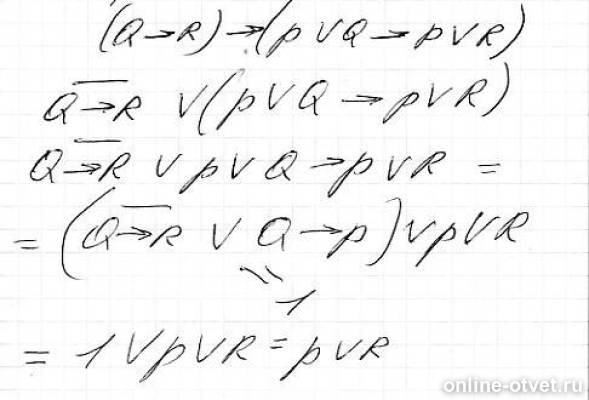 (Q→R)→(p∨Q→p∨R)
\overline{Q→R} ∨(p∨Q→p∨R)
\overline{Q→R} ∨ p∨Q→p∨R =
= (\overline{Q→R} ∨ Q→p)∨p∨R
1
= 1∨p∨R = p∨R
online-otvet.ru